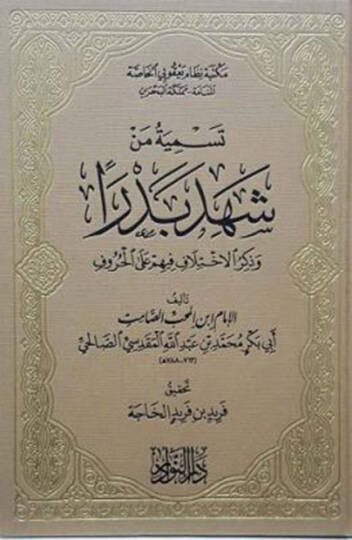 مكتبة نظام يعقوبي الخاصة
المنامة - مملكة البحرين
تسمية من
شهد بدرا
وذكر الاختلاف فيهم على الحروف
تأليف
الإمام ابن المحب الصامت
أبي بكر محمد بن عبد الله المقدسي الصالحي
(٧١٢-٧٨٨هـ)
تحقيق
فريد بن فريد الخاجة
دار النوادر